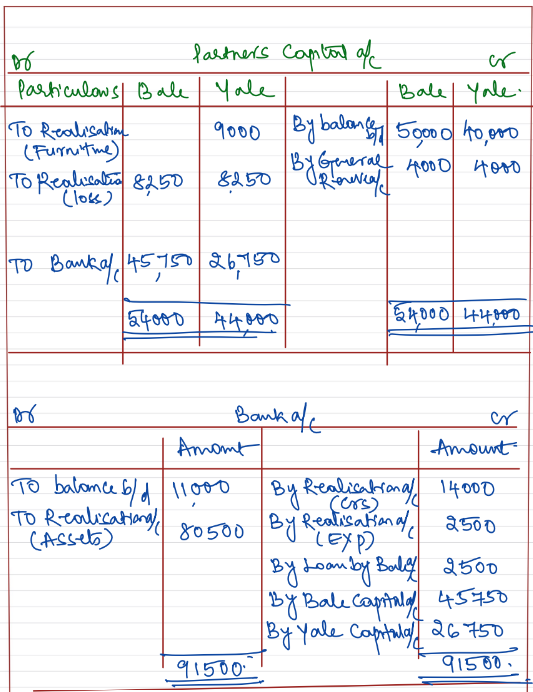 Dr Partners Capital a/c Cr
Particulars Bale Yale Bale Yale.
To Realisation 9000 By balance b/d 50,000 40,000
(Furniture)
By General Reserve a/c 4000 4000
To Realisation 8,250 8,250
(loss)
To Bank a/c 45,750 26,750
54000 44,000 54,000 44,000
Dr Bank a/c Cr
Amount Amount
To balance b/d 11,000 By Realisation a/c 14000
(Crs)
To Realisation a/c 80500 By Realisation a/c 2500
(Assets) (EXP)
By Loan by Bale a/c 2500
By Bale Capital a/c 45750
By Yale Capital a/c 26750
91500. 91500.